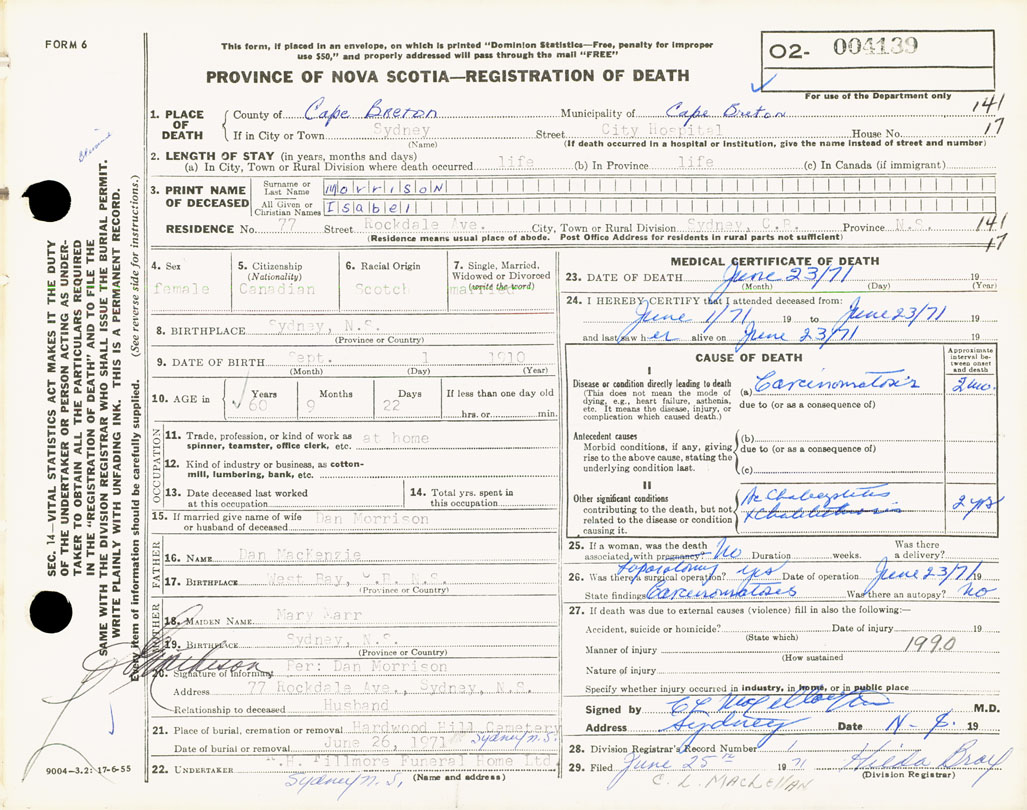 FORM 6
This form, if placed in an envelope, on which is printed "Dominion Statistics—Free, penalty for improper
use $50," and properly addressed will pass through the mail "FREE"
O2- 004139
PROVINCE OF NOVA SCOTIA—REGISTRATION OF DEATH
For use of the Department only
1. PLACE OF DEATH County of Cape Breton Municipality of Cape Breton 141
If in City or Town Sydney Street City Hospital House No. 17
(Name) (If death occurred in a hospital or institution, give the name instead of street and number)
2. LENGTH OF STAY (in years, months and days)
(a) In City, Town or Rural Division where death occurred life (b) In Province life (c) In Canada (if immigrant)
3. PRINT NAME OF DECEASED Surname or Last Name Morrison
All Given or Christian Names Isabel
RESIDENCE No. 77 Street Rockdale Ave. City, Town or Rural Division Sydney, C.B. Province N.S. 141
(Residence means usual place of abode. Post Office Address for residents in rural parts not sufficient) 17
4. Sex 5. Citizenship (Nationality) 6. Racial Origin 7. Single, Married, Widowed or Divorced (write the word)
female Canadian Scotch married
8. BIRTHPLACE Sydney, N.S.
(Province or Country)
9. DATE OF BIRTH Sept. 1 1910
(Month) (Day) (Year)
10. AGE in Years Months Days If less than one day old
60 9 22 hrs. or min.
OCCUPATION
11. Trade, profession, or kind of work as spinner, teamster, office clerk, etc. at home
12. Kind of industry or business, as cotton-mill, lumbering, bank, etc.
13. Date deceased last worked at this occupation
14. Total yrs. spent in this occupation
15. If married give name of wife or husband of deceased Dan Morrison
FATHER
16. NAME Dan MacKenzie
17. BIRTHPLACE West Bay, C.B. N.S.
(Province or Country)
MOTHER
18. MAIDEN NAME Mary Karr
19. BIRTHPLACE Sydney, N.S.
(Province or Country)
20. Signature of informant Per: Dan Morrison
Address 77 Rockdale Ave., Sydney, N.S.
Relationship to deceased Husband
21. Place of burial, cremation or removal Hardwood Hill Cemetery
Date of burial or removal June 26, 1971 Sydney N.S.
22. UNDERTAKER H. Fillmore Funeral Home Ltd.
Sydney N.S. (Name and address)
MEDICAL CERTIFICATE OF DEATH
23. DATE OF DEATH June 23/71 19
(Month) (Day) (Year)
24. I HEREBY CERTIFY that I attended deceased from:
June 1/71 19 to June 23/71 19
and last saw her alive on June 23/71 19
CAUSE OF DEATH
Approximate interval between onset and death
I
Disease or condition directly leading to death (a) Carcinomatosis 2 mo.
(This does not mean the mode of dying, e.g., heart failure, asthenia, etc. It means the disease, injury, or complication which caused death.)
due to (or as a consequence of)
Antecedent causes
Morbid conditions, if any, giving rise to the above cause, stating the underlying condition last.
(b)
due to (or as a consequence of)
(c)
II
Other significant conditions
contributing to the death, but not related to the disease or condition causing it. 2 yrs
25. If a woman, was the death associated with pregnancy? No Duration weeks. Was there a delivery?
26. Was there a surgical operation? yes Date of operation June 23/71 19
State findings Carcinomatosis Was there an autopsy? No
27. If death was due to external causes (violence) fill in also the following:—
Accident, suicide or homicide? Date of injury 19
(State which)
Manner of injury 1990
(How sustained
Nature of injury
Specify whether injury occurred in industry, in home, or in public place
Signed by M.D.
Address Sydney Date N-S. 19
28. Division Registrar's Record Number
29. Filed June 25th 1971 Hilda Bray
C. L. MacLellan (Division Registrar)
SEC. 14—VITAL STATISTICS ACT MAKES IT THE DUTY
OF THE UNDERTAKER OR PERSON ACTING AS UNDER-
TAKER TO OBTAIN ALL THE PARTICULARS REQUIRED
IN THE "REGISTRATION OF DEATH" AND TO FILE THE
SAME WITH THE DIVISION REGISTRAR WHO SHALL ISSUE THE BURIAL PERMIT.
WRITE PLAINLY WITH UNFADING INK. THIS IS A PERMANENT RECORD.
Every item of information should be carefully supplied. (See reverse side for instructions.)
9004—3.2: 17-6-55